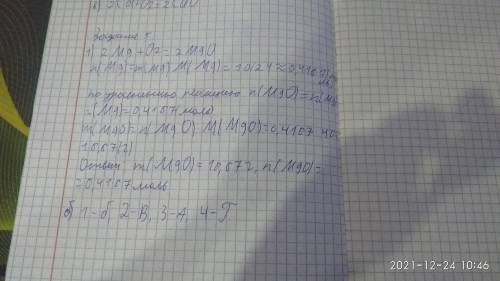 в) 2Ca+O2=2CaO
Задание 5
1) 2Mg+O2=2MgO
n(Mg)=m(Mg) M(Mg)=10/24≈0,4167
моль
по уравнению реакции n(MgO)=n(Mg)
n(Mg)=0,4167 моль
m(MgO)=n(MgO) M(MgO)=0,4167 40=
16,67(г)
Ответ: m(MgO)=16,67 г, n(MgO)=
=0,4167 моль
б) 1-б, 2-В, 3-А, 4-Г
2021-12-24 10:46